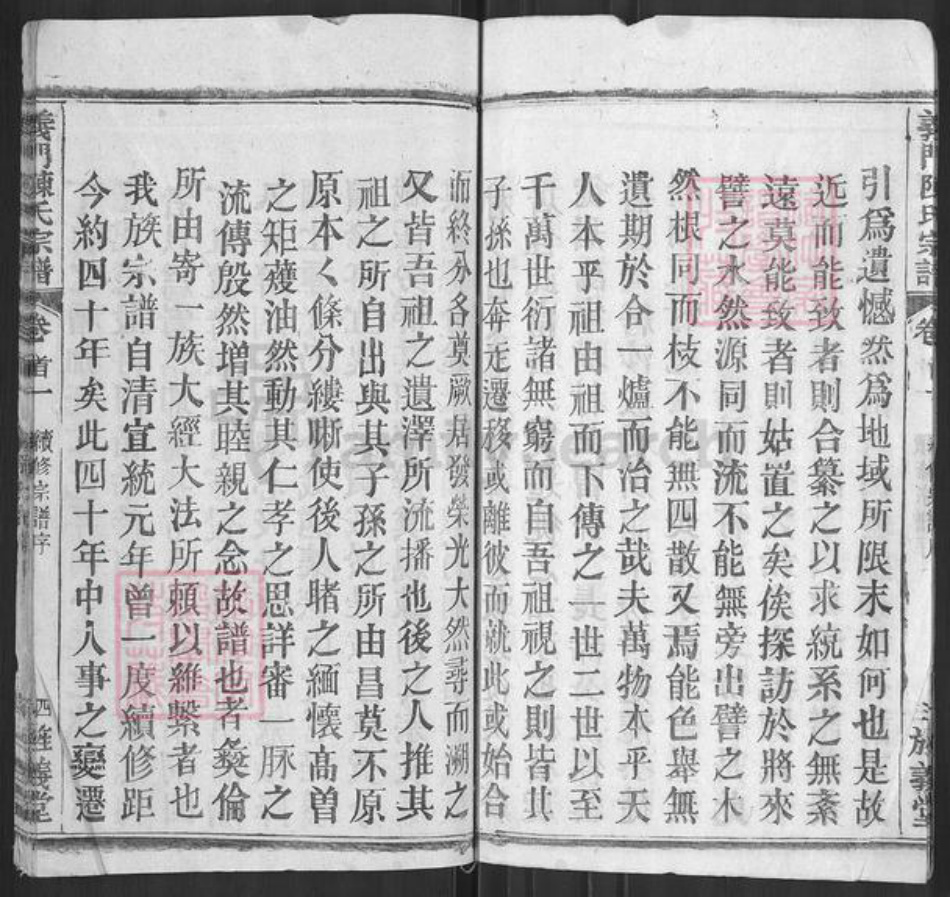 義門陳氏宗譜
卷首一
三 旌義堂
引爲遺憾然爲地域所限末如何也是故
近而能致者則合纂之以求統系之無紊
遠莫能致者則姑置之矣俟探訪於將來
譬之水然源同而流不能無旁出譬之木
然根同而枝不能無四散又焉能色舉無
遺期於合一爐而冶之哉夫萬物本乎天
人本乎祖由祖而下傳之一世二世以至
千萬世衍諸無窮而自吾祖視之則皆其
子孫也奔走遷移或離彼而就此或始合
而終分各奠厥居發榮光大然尋而溯之
又皆吾祖之遺澤所流播也後之人推其
祖之所自出與其子孫之所由昌莫不原
原本く條分縷晰使後人睹之緬懷高曾
之矩蒦油然動其仁孝之思詳審一脉之
流傳殷然增其睦親之念故譜也者彝倫
所由寄一族大經大法所賴以維繫者也
我族宗譜自清宣統元年曾一度續修距
今約四十年矣此四十年中人事之變遷
義門陳氏宗譜
卷首一
續修宗譜序
四 旌義堂